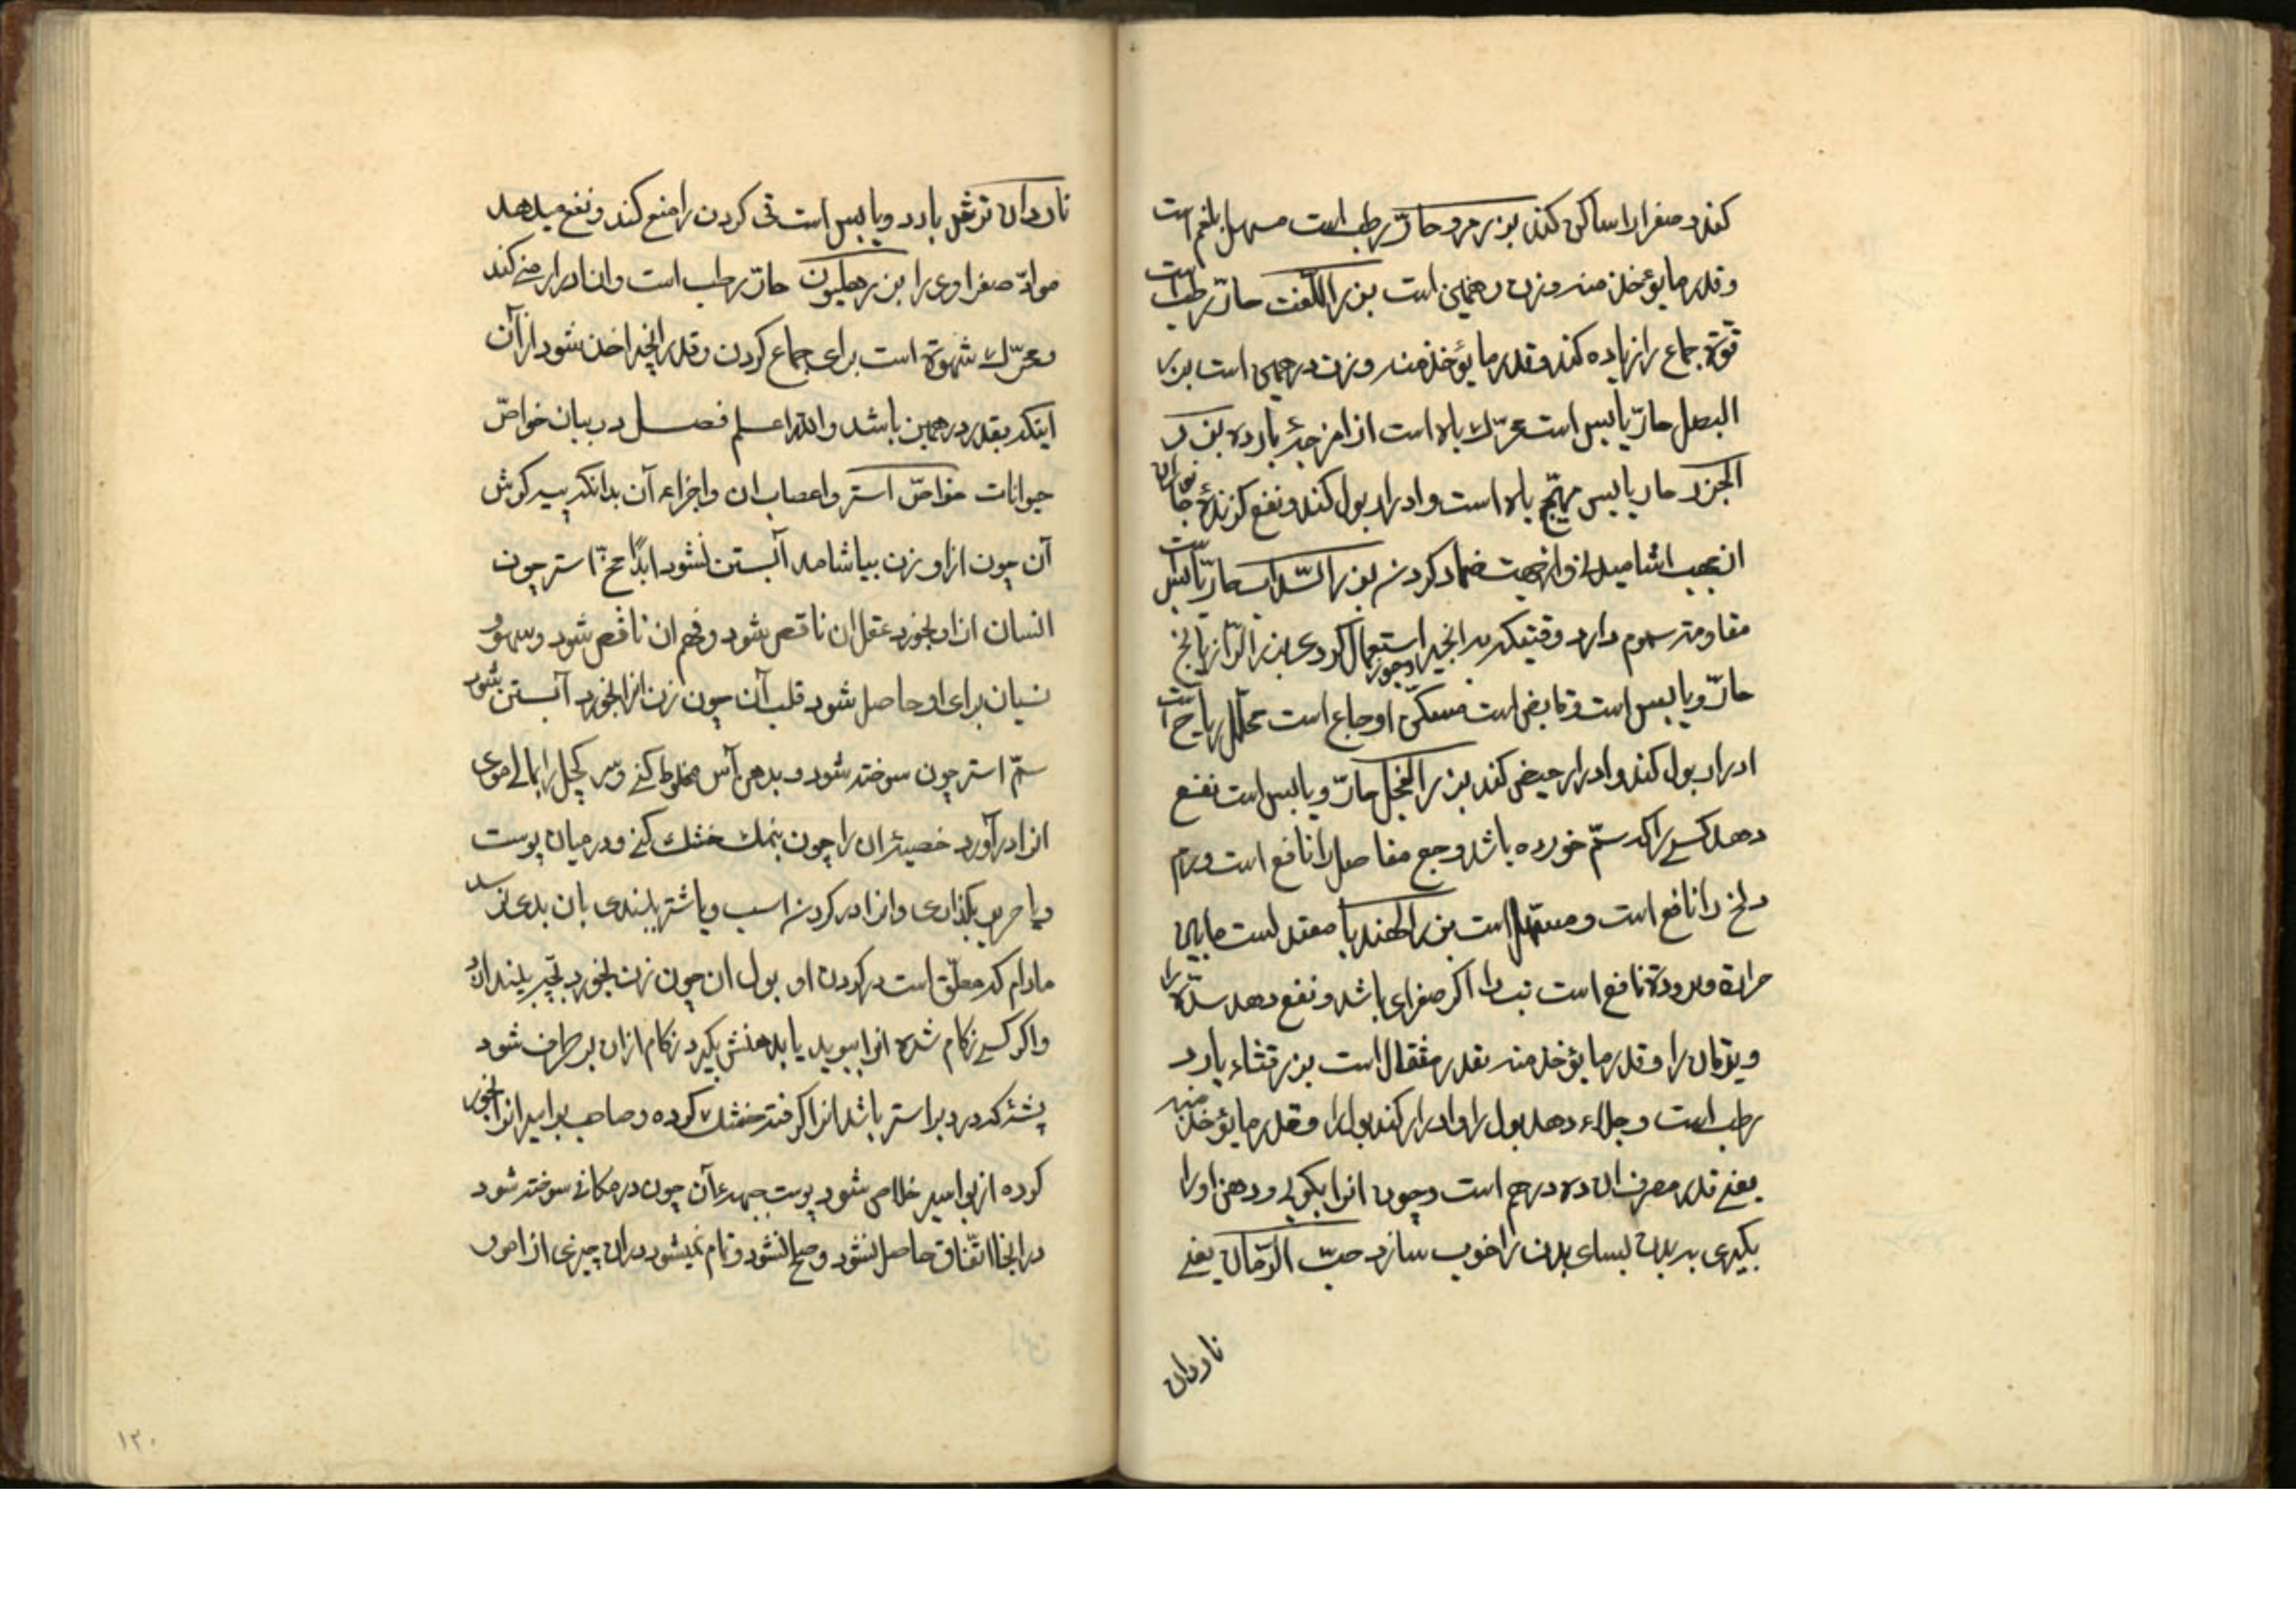 کند و صفرا را ساکن کند بزر مرو حارّ رطب است مسهل بلغم است
و قدر ما یؤخذ منه وزن درهمین است بزر اللفت حارّ رطب است
قوّة جماع را زیاده کند و قدر ما یؤخذ منه وزن درهمی است بزر
البصل حارّ یابس است محرّك باه است از امزجهٔ بارده بزر
الجزر حار یابس مهیّج باه است و ادرار بول کند و نفع کزندهٔ
مقاومتر سموم دارد وقتیکه به انجیر و جوز استعمال کردی بزر الرازیانج
حارّ و یابس است و قابض است مسکّن اوجاع است محلّل ریاح است
ادرار بول کند و ادرار حیض کند بزر الفجل حارّ و یابس است نفع
دهد کسی را که سمّ خورده باشد و جع مفاصل را نافع است و ورم
را نافع است و مسهل است بزر الهندبا معتدلست مابین
حرارة و برودة نافع است تب را اکر صفرای باشد و نفع دهد سدّة را
و یرقان را و قدر ما یؤخذ منه بقدر مثقال است بزر قثاء بارد
رطب است و جلاء دهد بول را و ادرار کند بول را و قدر ما یؤخذ منه
یعنے قدر مصرف ان ده درهم است و چون انرا بکوبی و دهن او را
بکیری به بدن بسای بدن را خوب سازد حبّ الرمّان یعنے
ناردان
ناردان ترش بارد و یابس است قی کردن را منع کند و نفع میدهد
موادّ صفراوی را بزر هلیون حارّ رطب است و ان ادرار منے کند
و محرّك شهوة است برای جماع کردن و قدر انچه اخذ شود از آن
اینکه بقدر درهمین باشد والله اعلم فصل در بیان خواصّ
حیوانات خواصّ استر و اعصاب ان و اجزاء آن بدانکه پیه کوش
آن چون از او زن بیاشامد آبستن نشود ابدًا مخّ استر چون
انسان از او بخورد عقل ان ناقص شود و فهم ان ناقص شود و سهو و
نسیان برای او حاصل شود قلب آن چون زن انرا بخورد آبستن نشود
سمّ استر چون سوخته شود و بدهن آس مخلوط کنے و سر کچل را بمالے موی
انرا درآورد خصیهٔ ان را چون بنمك خشك کنے و در میان پوست
و یا حریر بکذاری و انرا در کردن اسب و یا شتر ببندی بان بدی نرسد
مادام که معلّق است در کردن او بول ان چون زن بخورد بچه بیندازد
و اکر کسے زکام شده انرا ببوید یا بدهنش بکیرد زکام از ان بر طرف شود
پشهٔ که در دبر استر باشد انرا کرفته خشك کرده و صاحب بواسیر انرا بخور
کرده از بواسیر خلاص شود پوست جبههٔ آن چون در مکانے سوخته شود
در انجا اتّفاق حاصل نشود و صلح نشود و تمام نمیشود در ان چیزی از امور
۱۲۰